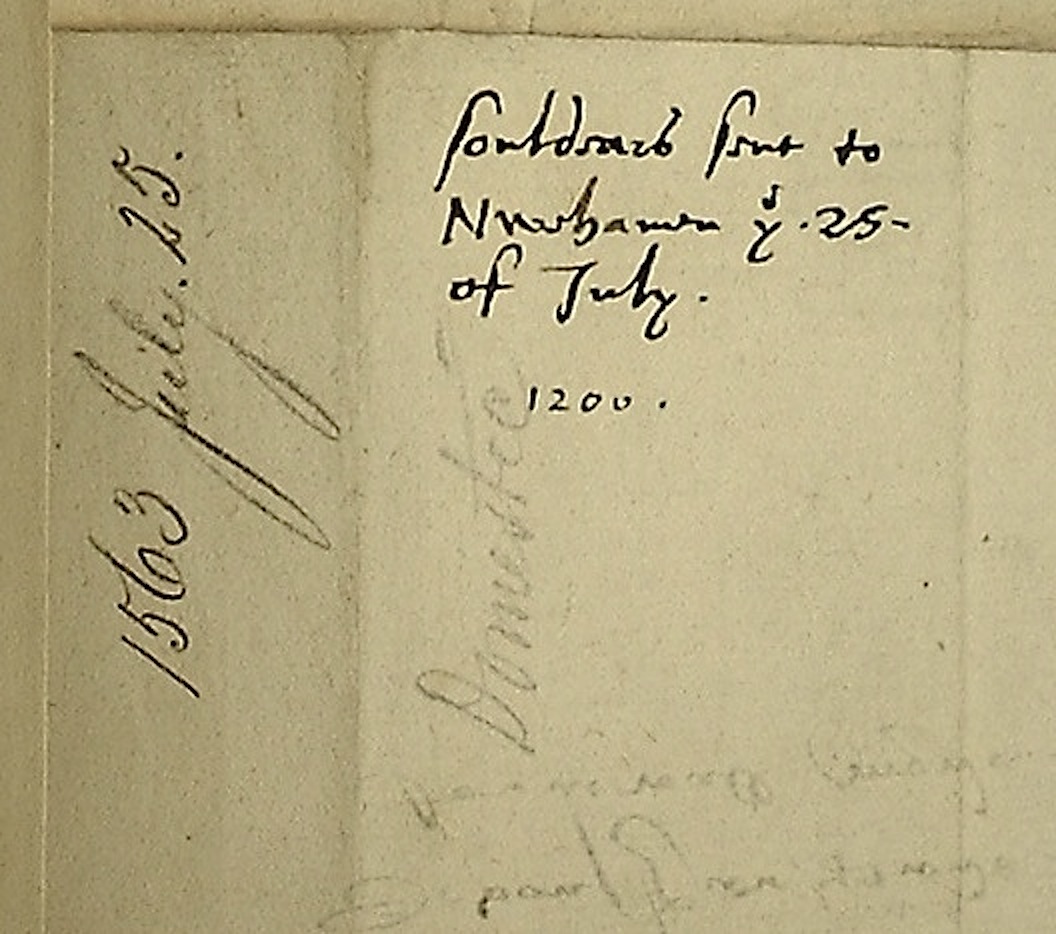 souldears sent to
Newhaven yͤ .25-
of July.
1200.
1563 July. 25.
Domestic